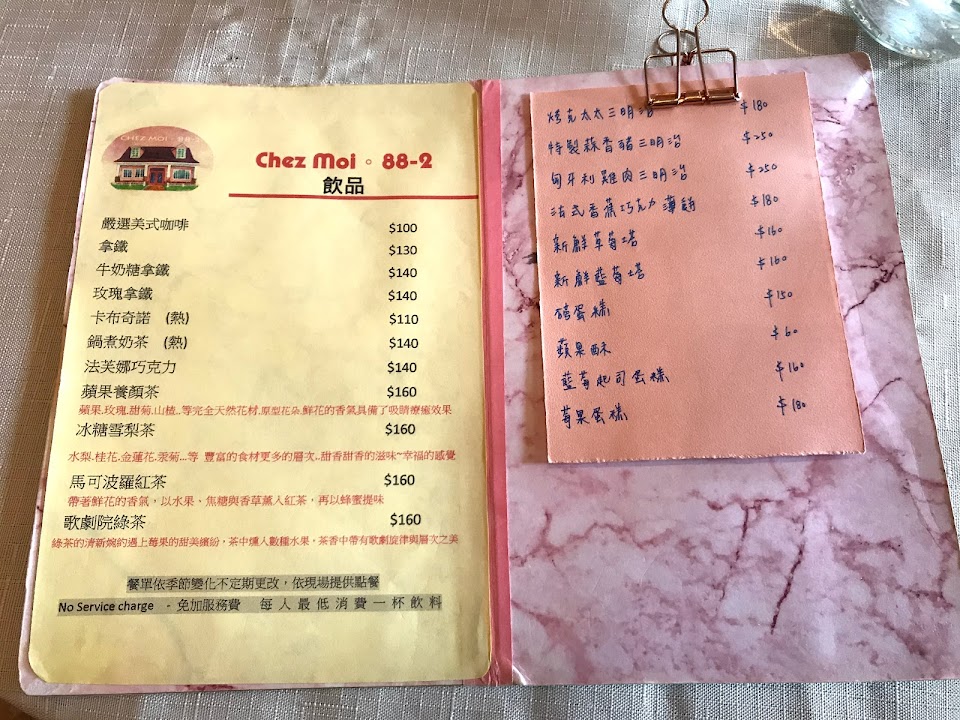 CHEZ MOI
Chez Moi。88-2
飲品
嚴選美式咖啡 $100
拿鐵 $130
牛奶糖拿鐵 $140
玫瑰拿鐵 $140
卡布奇諾 (熱) $110
鍋煮奶茶 (熱) $140
法芙娜巧克力 $140
蘋果養顏茶 $160
蘋果.玫瑰.甜菊.山楂..等完全天然花材.原型花朵.鮮花的香氣具備了吸睛療癒效果
冰糖雪梨茶 $160
水梨.桂花.金蓮花.汞菊...等 豐富的食材更多的層次..甜香甜香的滋味~幸福的感覺
馬可波羅紅茶 $160
帶著鮮花的香氣，以水果、焦糖與香草薰入紅茶，再以蜂蜜提味
歌劇院綠茶 $160
綠茶的清新婉約遇上莓果的甜美繽紛，茶中燻入數種水果，茶香中帶有歌劇旋律與層次之美
餐單依季節變化不定期更改，依現場提供點餐
No Service charge - 免加服務費 每人最低消費一杯飲料
烤克太太三明治 $180
特製蒜香豬三明治 $250
匈牙利雞肉三明治 $250
法式香蕉巧克力薄餅 $180
新鮮草莓塔 $160
新鮮藍莓塔 $160
磅蛋糕 $150
蘋果酥 $60
藍莓起司蛋糕 $160
莓果蛋糕 $180